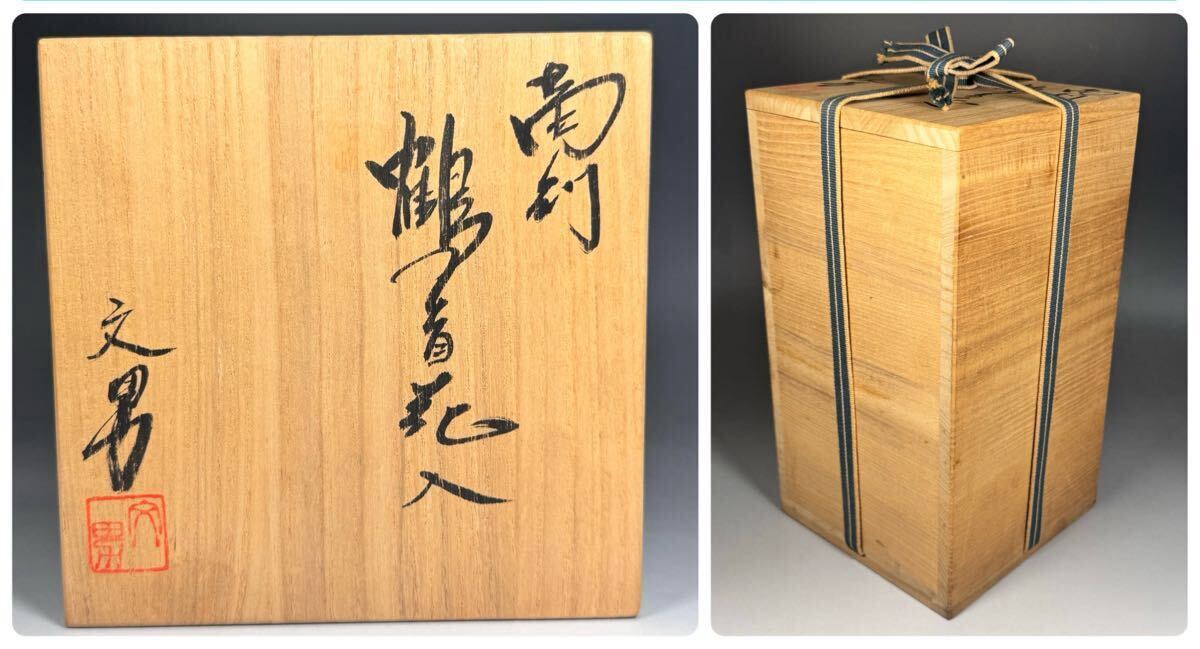 鶴首花入
文男
文男